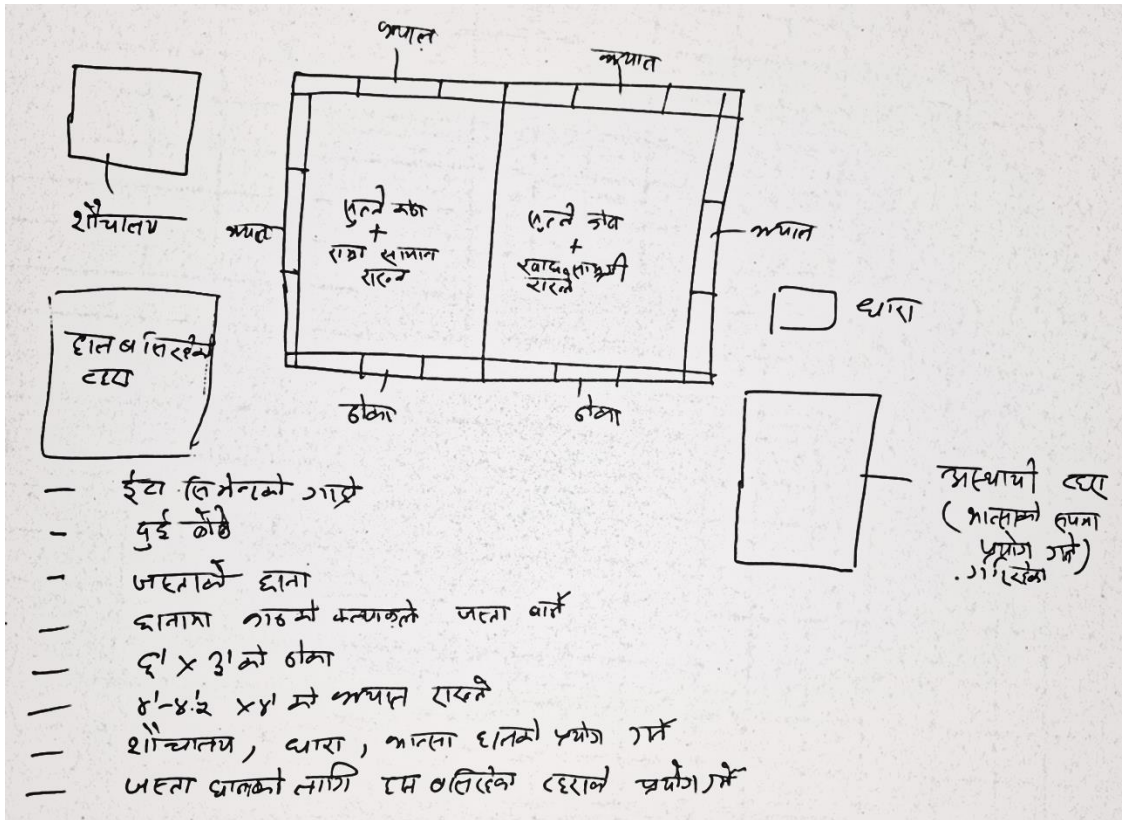 झ्याल
झ्याल
शौचालय
झ्याल
सुत्ने कोठा
+
राम्रा सामान
राख्ने
सुत्ने कोठा
+
खाद्य सामग्री
राख्ने
झ्याल
धारा
हाल बसिरहेको
टहरा
ढोका
ढोका
अस्थायी टहरा
(भान्साको रुपमा
प्रयोग गर्ने)
गरिरहेको
— ईटा सिमेन्टको गाह्रो
- दुई कोठे
- जस्ताको छाना
— छानामा काठको जस्ता
— ६' x ३' को ढोका
— ४'-४.५ x४' को झ्याल राख्ने
— शौचालय, धारा, भान्सा हालको प्रयोग गर्ने
— जस्ता छानाको लागि बसिरहेका टहराको प्रयोग गर्ने